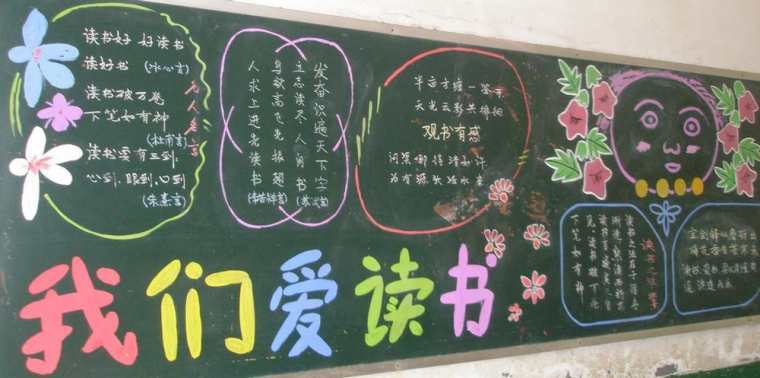 读书好 好读书
读好书 (冰心言)
读书破万卷
下笔如有神
(杜甫言)
读书要有三到,
心到,眼到,口到
(朱熹言)
名人名言
发奋识遍天下字
立志读尽人间书
(苏轼言)
鸟欲高飞先振翅
人求上进先读书
(李苦禅言)
半亩方塘一鉴开
天光云影共徘徊
观书有感
问渠哪得清如许
为有源头活水来
我们爱读书
下笔如有神
宝剑锋从磨砺出
梅花香自苦寒来